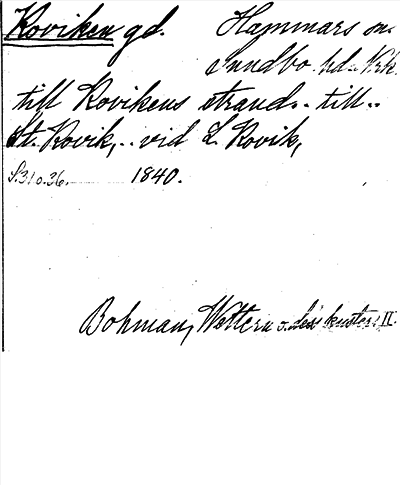 Koviken gd. Hammars sn.
Sundbo hd. Nrk.
till Kovikens strand.. till..
St. Kovik,.. vid L. Kovik,
S. 31 o. 36. 1840.
Bohman, Wettern o. dess kuster. II.